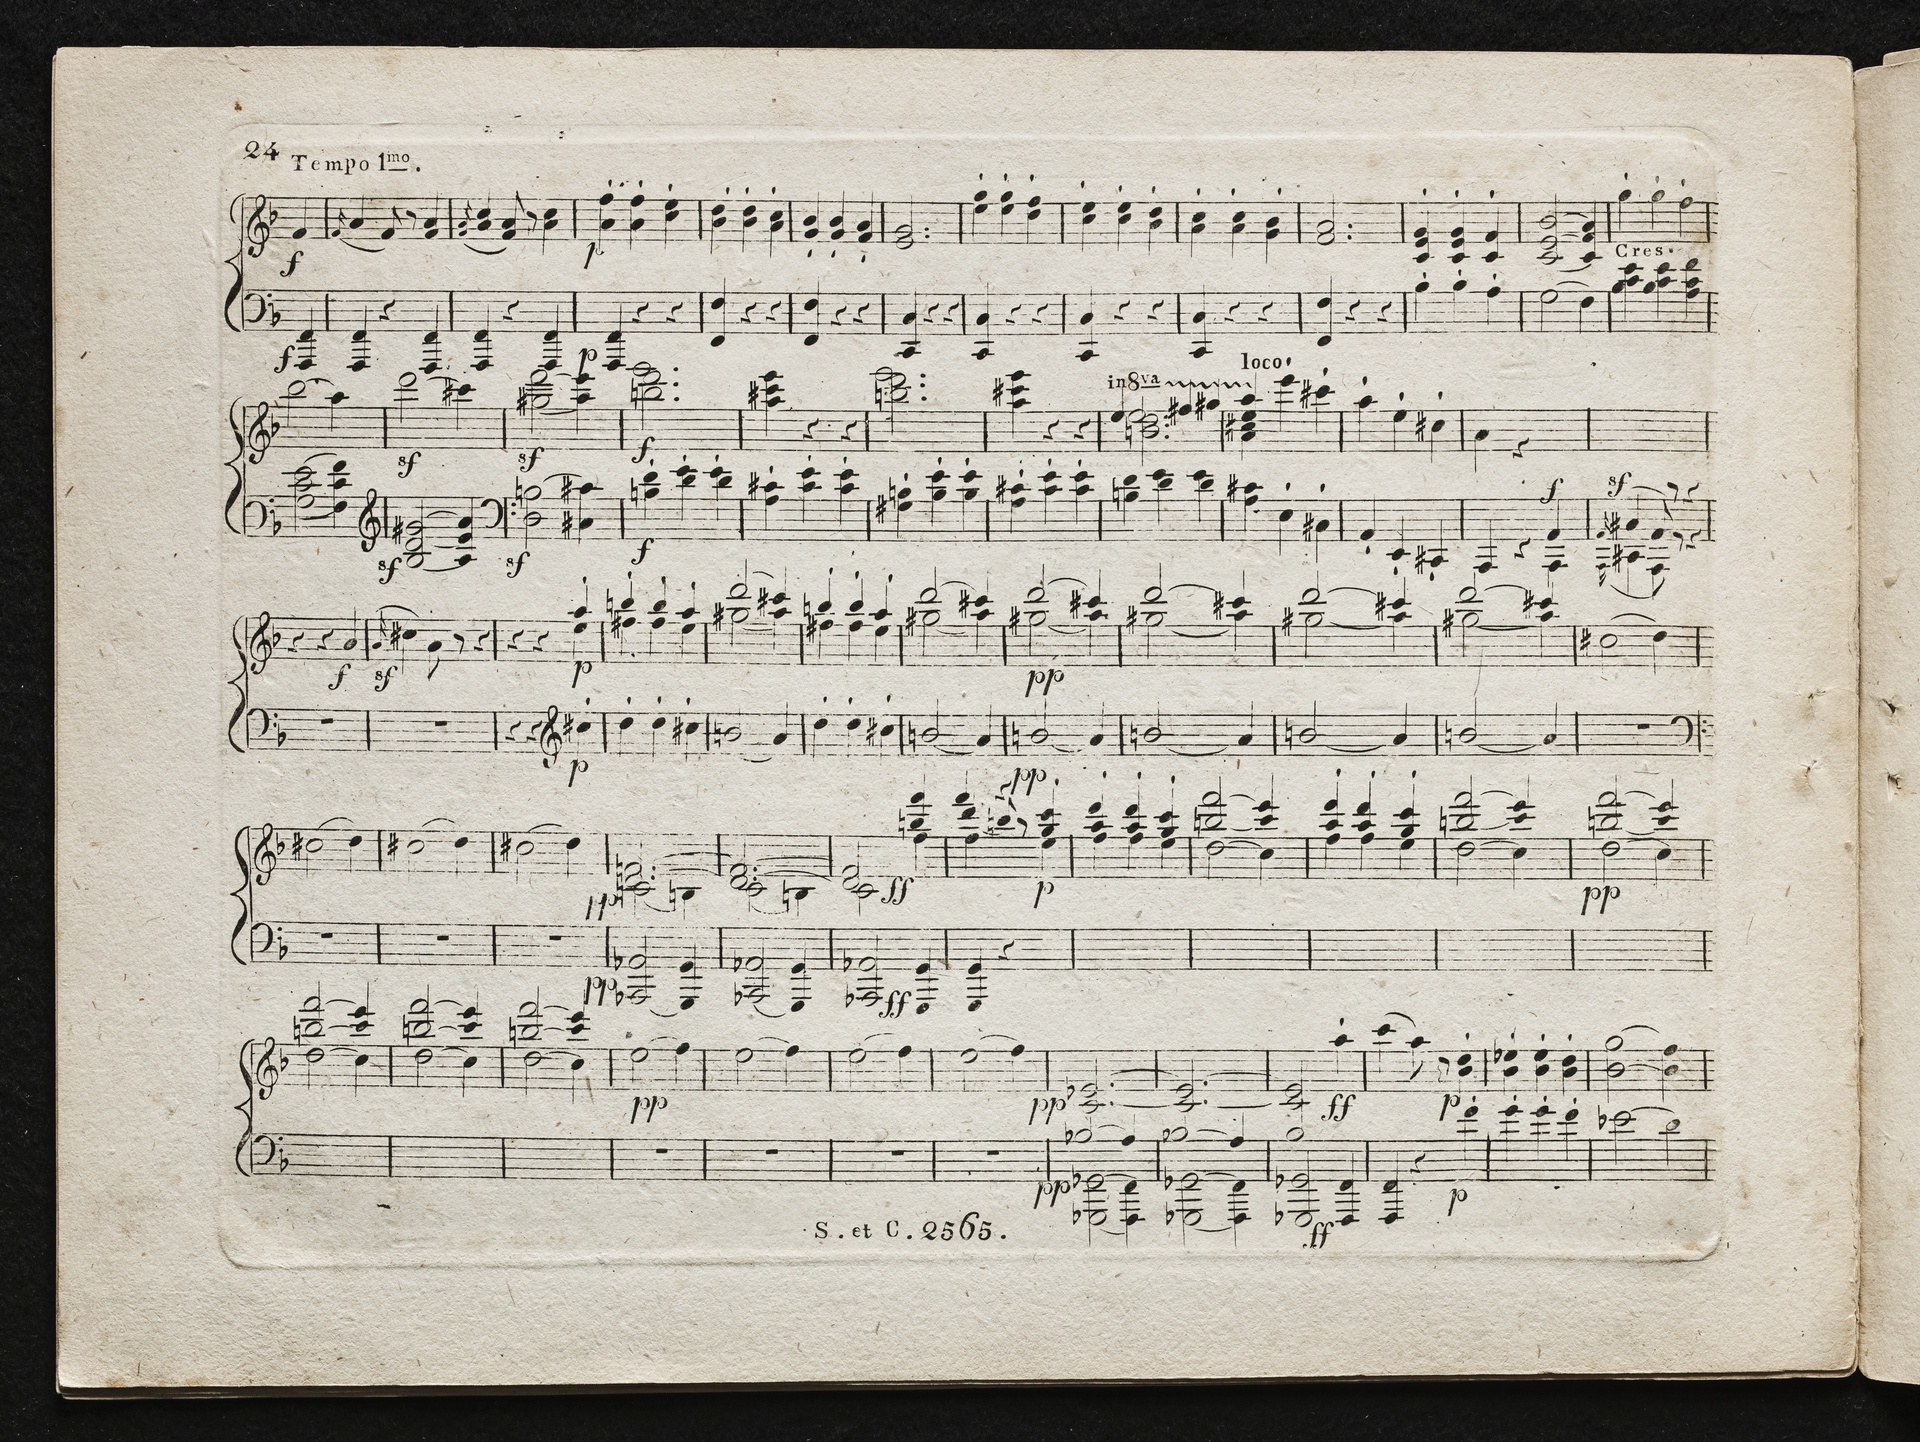 24 Tempo 1mo.
f p
Cres.
f p
in 8va loco.
sf sf f
f sf
sf sf f
f sf p pp
p pp
pp ff p pp
pp ff
pp pp ff p
pp ff p
S. et C. 2565.